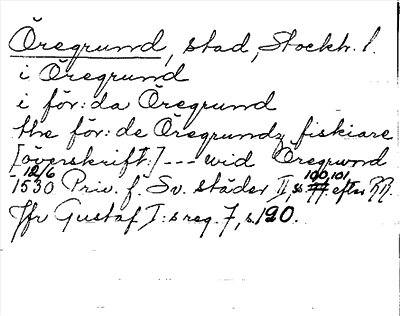 Öregrund, stad, Stockh. l.
i Öregrund
i för:da Öregrund
the för:de Öregrundz fiskiare
[överskrift:] --- wid Öregrund
12/6 100,101
1530 Priv. f. Sv. städer II, s. 77. efter RR.
Jfr Gustaf I:s reg. 7, s. 190.